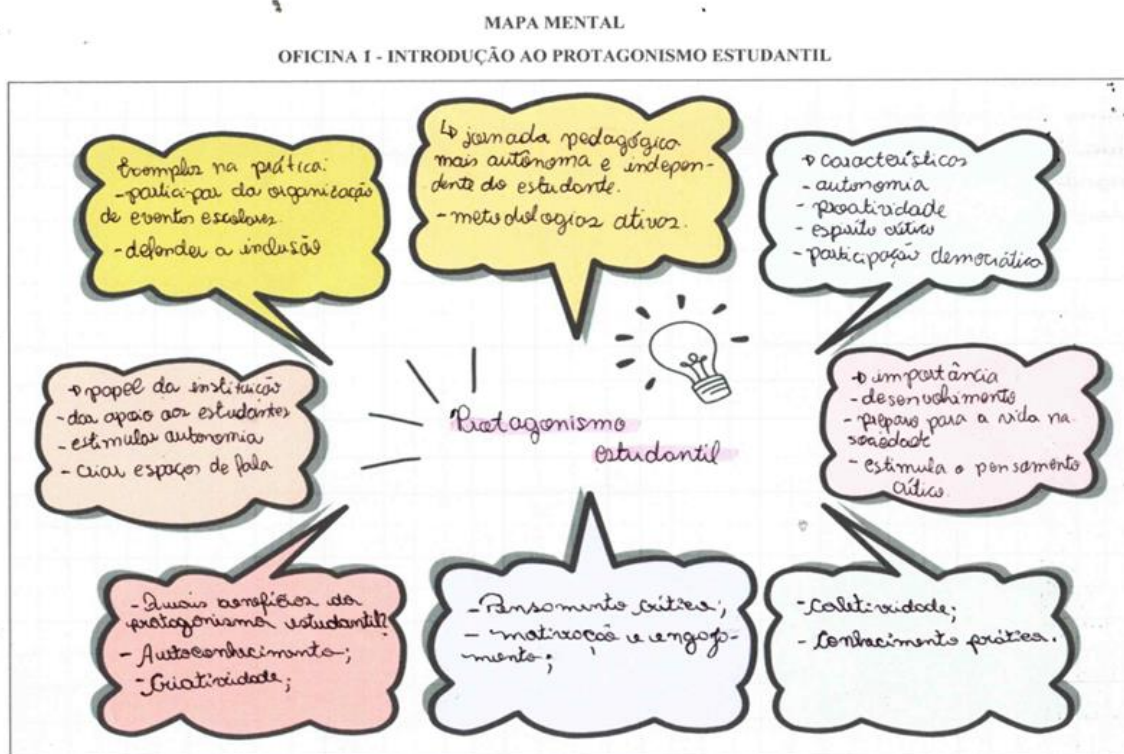 MAPA MENTAL
OFICINA 1 - INTRODUÇÃO AO PROTAGONISMO ESTUDANTIL
Exemplos na prática:
- participar da organização
de eventos escolares.
- defender a inclusão
↳ jornada pedagógica
mais autônoma e indepen-
dente do estudante.
- metodologias ativas.
→ características
- autonomia
- proatividade
- espírito crítico
- participação democrática
→ papel da instituição
- dar apoio aos estudantes
- estimular autonomia
- criar espaços de fala
Protagonismo
estudantil
→ importância
- desenvolvimento
- preparo para a vida na
sociedade
- estimula o pensamento
crítico.
- Quais benefícios do
protagonismo estudantil?
- Autoconhecimento;
- Criatividade;
- Pensamento crítico;
- motivação e engaja-
mento;
- Coletividade;
- Conhecimento prático.